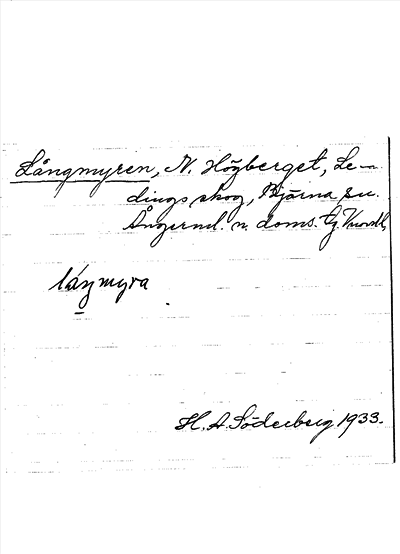 Långmyren, N. Högberget, Le-
dings skog, Björna sn.
Ångerml. n. doms.
låŋmyra
H. A. Söderberg 1933.